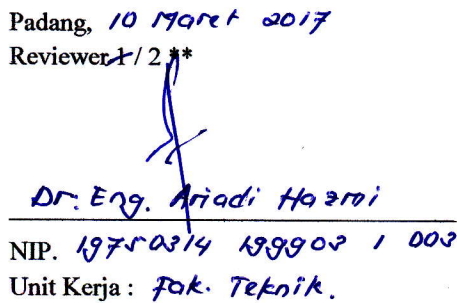 Padang, 10 Maret 2017
Reviewer 1 / 2 **
Dr. Eng. Ariadi Hazmi
NIP. 19750314 199903 1 003
Unit Kerja : Fak. Teknik.